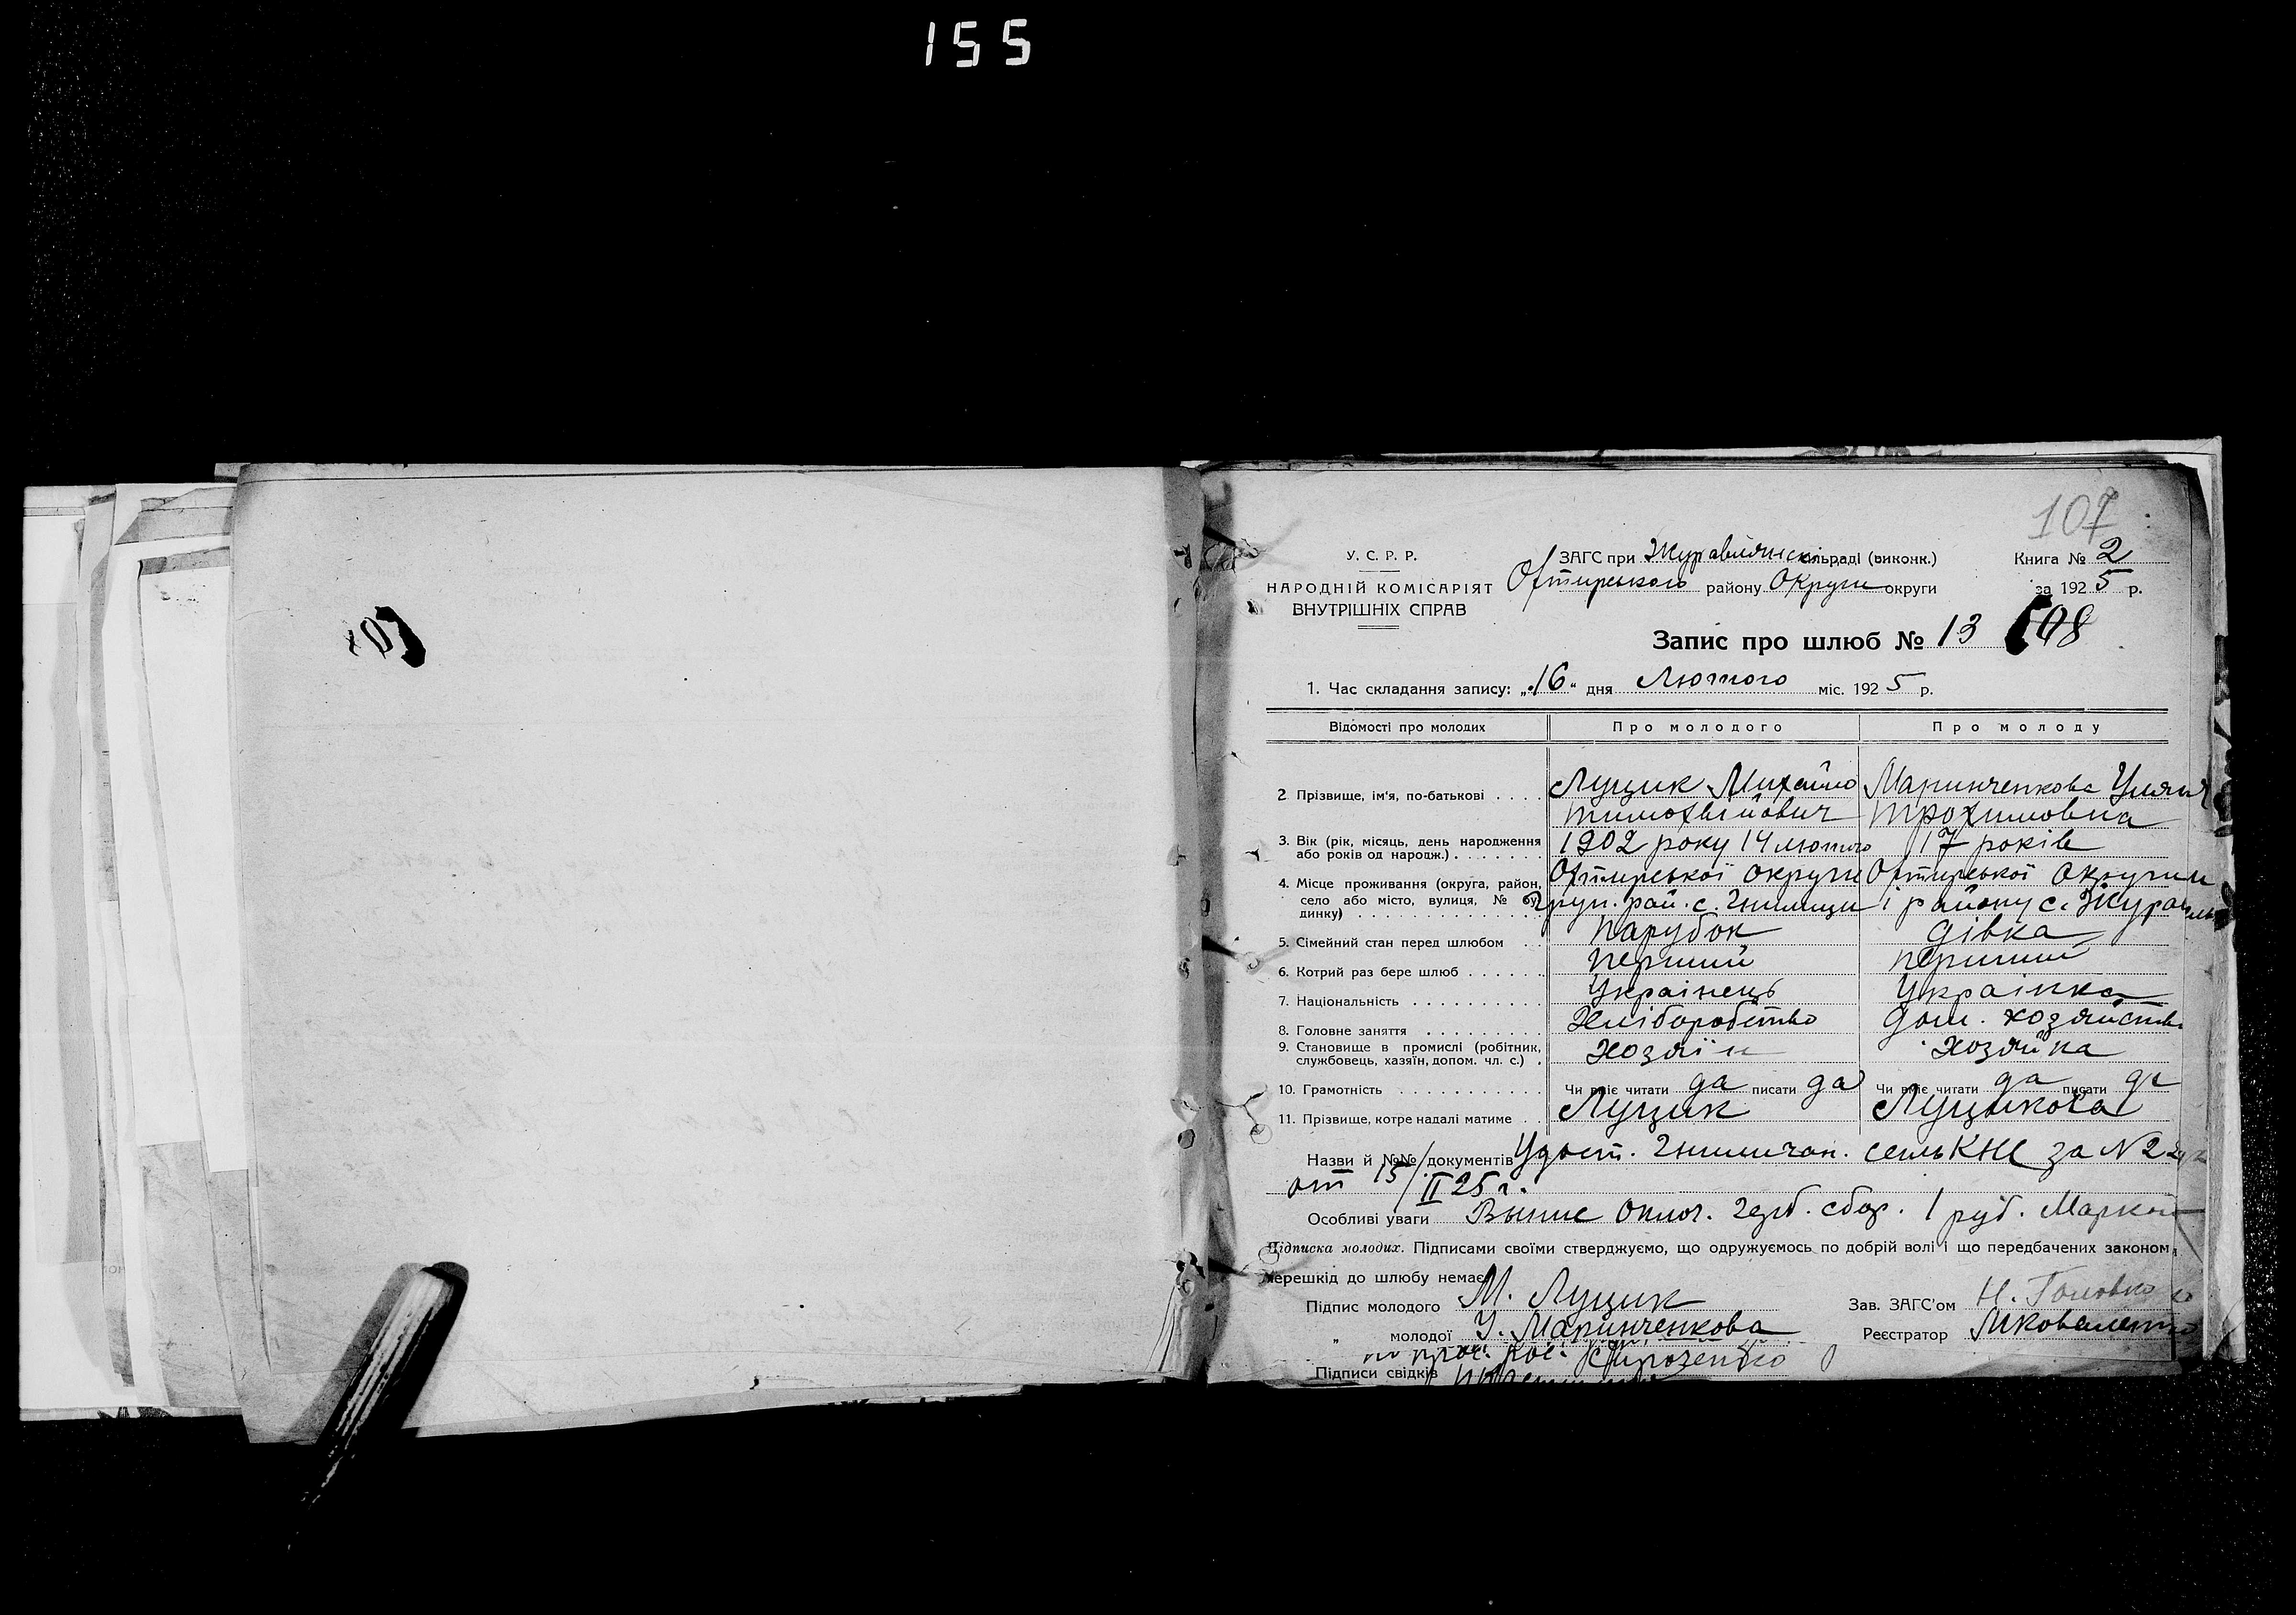 155
107
У. С. Р. Р.
НАРОДНІЙ КОМІСАРІЯТ
ВНУТРІШНІХ СПРАВ
ЗАГС при Журавлянск сільраді (виконк.)
Охтирського району Округи округи
Книга № 2
за 1925 р.
Запис про шлюб № 13 108
1. Час складання запису: „16“ дня Лютого міс. 1925 р.
Відомості про молодих Про молодого Про молоду
2. Прізвище, ім'я, по-батькові Луцик Михайло Маринченкова Уляна
Тимохвійович Трохимовна
3. Вік (рік, місяць, день народження або років од народж.) 1902 року 14 лютого 17 років
4. Місце проживання (округа, район, село або місто, вулиця, № будинку) Охтирської округи Охтирської Округи
рай. с. Гнилици і району с. Журавль
5. Сімейний стан перед шлюбом Парубок дівка
6. Котрий раз бере шлюб перший перший
7. Національність Українець Українка
8. Головне заняття Хліборобство дом. хозяйство
9. Становище в промислі (робітник, службовець, хазяїн, допом. чл. с.) Хозяїн Хозяйка
10. Грамотність Чи вміє читати да писати да Чи вміє читати да писати да
11. Прізвище, котре надалі матиме Луцик Луцикова
Назви й №№ документів Удост. Гниличан. сельКНС за N 2
от 15/II 25 г.
Особливі уваги Выше оплоч. герб. сбор. 1 руб. Маркой
Підписка молодих. Підписами своїми стверджуємо, що одружуємось по добрій волі і що передбачених законом
перешкід до шлюбу немає
Підпис молодого М. Луцик Зав. ЗАГС'ом Н. Головко
„ молодої У. Маринченкова Реєстратор
Підписи свідків